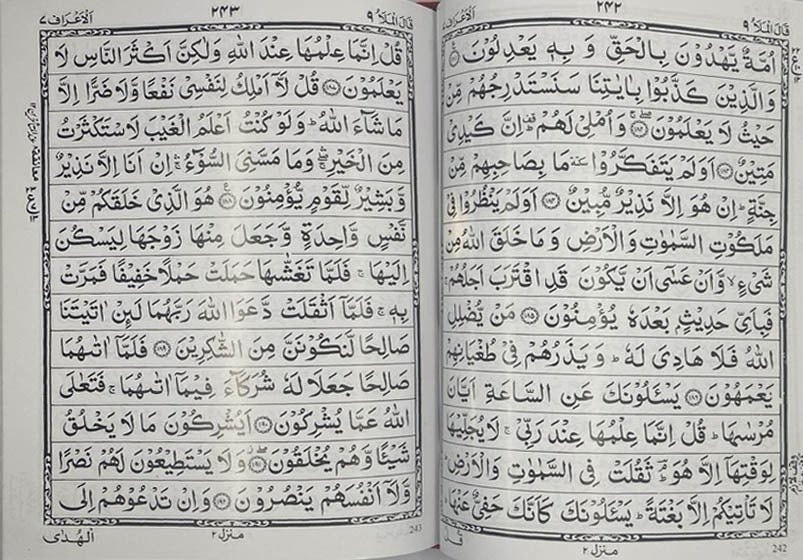 قَالَ الْمَلَاُ ۹ ۲۴۲ اَلْاَعْرَاف ۷
اُمَّةٌ يَّهْدُوْنَ بِالْحَقِّ وَ بِهٖ يَعْدِلُوْنَ ﴿۱۸۱﴾
وَالَّذِيْنَ كَذَّبُوْا بِاٰيٰتِنَا سَنَسْتَدْرِجُهُمْ مِّنْ
حَيْثُ لَا يَعْلَمُوْنَ ﴿۱۸۲﴾ وَاُمْلِيْ لَهُمْ ؕ اِنَّ كَيْدِيْ
مَتِيْنٌ ﴿۱۸۳﴾ اَوَلَمْ يَتَفَكَّرُوْا مَا بِصَاحِبِهِمْ مِّنْ
جِنَّةٍ ؕ اِنْ هُوَ اِلَّا نَذِيْرٌ مُّبِيْنٌ ﴿۱۸۴﴾ اَوَلَمْ يَنْظُرُوْا فِيْ
مَلَكُوْتِ السَّمٰوٰتِ وَالْاَرْضِ وَمَا خَلَقَ اللّٰهُ مِنْ
شَيْءٍ ۙ وَّاَنْ عَسٰٓى اَنْ يَّكُوْنَ قَدِ اقْتَرَبَ اَجَلُهُمْ ۚ
فَبِاَيِّ حَدِيْثٍۭ بَعْدَهٗ يُؤْمِنُوْنَ ﴿۱۸۵﴾ مَنْ يُّضْلِلِ
اللّٰهُ فَلَا هَادِيَ لَهٗ ؕ وَ يَذَرُهُمْ فِيْ طُغْيَانِهِمْ
يَعْمَهُوْنَ ﴿۱۸۶﴾ يَسْـَٔلُوْنَكَ عَنِ السَّاعَةِ اَيَّانَ
مُرْسٰىهَا ؕ قُلْ اِنَّمَا عِلْمُهَا عِنْدَ رَبِّيْ ۚ لَا يُجَلِّيْهَا
لِوَقْتِهَاۤ اِلَّا هُوَ ؔ ثَقُلَتْ فِي السَّمٰوٰتِ وَالْاَرْضِ ؕ
لَا تَاْتِيْكُمْ اِلَّا بَغْتَةً ؕ يَسْـَٔلُوْنَكَ كَاَنَّكَ حَفِيٌّ عَنْهَا ؕ
242 منزل ۲ قُلْ
قَالَ الْمَلَاُ ۹ ۲۴۳ اَلْاَعْرَاف ۷
قُلْ اِنَّمَا عِلْمُهَا عِنْدَ اللّٰهِ وَلٰكِنَّ اَكْثَرَ النَّاسِ لَا
يَعْلَمُوْنَ ﴿۱۸۷﴾ قُلْ لَّاۤ اَمْلِكُ لِنَفْسِيْ نَفْعًا وَّلَا ضَرًّا اِلَّا
مَا شَآءَ اللّٰهُ ؕ وَلَوْ كُنْتُ اَعْلَمُ الْغَيْبَ لَاسْتَكْثَرْتُ
مِنَ الْخَيْرِ ۛ وَمَا مَسَّنِيَ السُّوْٓءُ ۛ اِنْ اَنَا اِلَّا نَذِيْرٌ
وَّبَشِيْرٌ لِّقَوْمٍ يُّؤْمِنُوْنَ ﴿۱۸۸﴾ هُوَ الَّذِيْ خَلَقَكُمْ مِّنْ
نَّفْسٍ وَّاحِدَةٍ وَّجَعَلَ مِنْهَا زَوْجَهَا لِيَسْكُنَ
اِلَيْهَا ۚ فَلَمَّا تَغَشّٰىهَا حَمَلَتْ حَمْلًا خَفِيْفًا فَمَرَّتْ
بِهٖ ۚ فَلَمَّاۤ اَثْقَلَتْ دَّعَوَا اللّٰهَ رَبَّهُمَا لَئِنْ اٰتَيْتَنَا
صَالِحًا لَّنَكُوْنَنَّ مِنَ الشّٰكِرِيْنَ ﴿۱۸۹﴾ فَلَمَّاۤ اٰتٰىهُمَا
صَالِحًا جَعَلَا لَهٗ شُرَكَآءَ فِيْمَاۤ اٰتٰىهُمَا ۚ فَتَعٰلَى
اللّٰهُ عَمَّا يُشْرِكُوْنَ ﴿۱۹۰﴾ اَيُشْرِكُوْنَ مَا لَا يَخْلُقُ
شَيْـًٔا وَّهُمْ يُخْلَقُوْنَ ﴿۱۹۱﴾ وَلَا يَسْتَطِيْعُوْنَ لَهُمْ نَصْرًا
وَّلَاۤ اَنْفُسَهُمْ يَنْصُرُوْنَ ﴿۱۹۲﴾ وَاِنْ تَدْعُوْهُمْ اِلَى
243 منزل ۲ الْهُدٰى